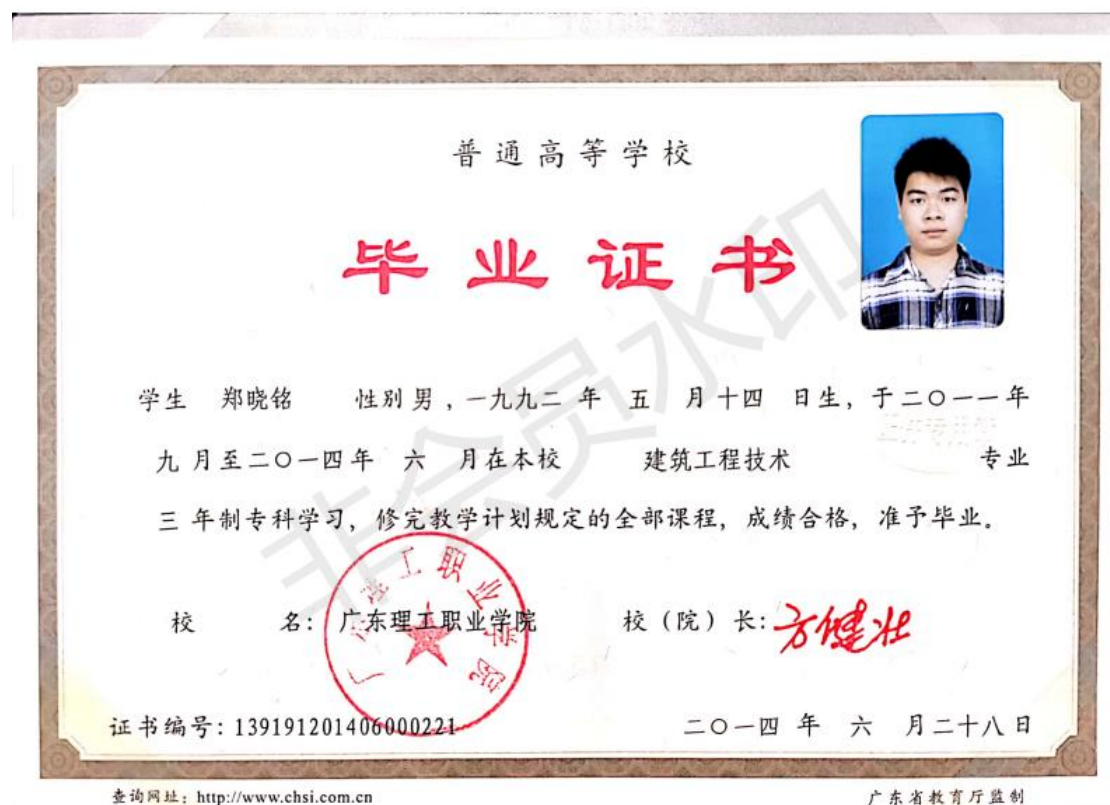 普通高等学校
毕业证书
学生 郑晓铭 性别 男，一九九二 年 五 月十四 日生，于二〇一一年
九 月至二〇一四年 六 月在本校 建筑工程技术 专业
三 年制专科学习，修完教学计划规定的全部课程，成绩合格，准予毕业。
校 名：广东理工职业学院 校（院）长：方健壮
广东理工职业学院
证书编号：139191201406000221 二〇一四 年 六 月二十八日
查询网址：http://www.chsi.com.cn 广东省教育厅监制
非会员水印